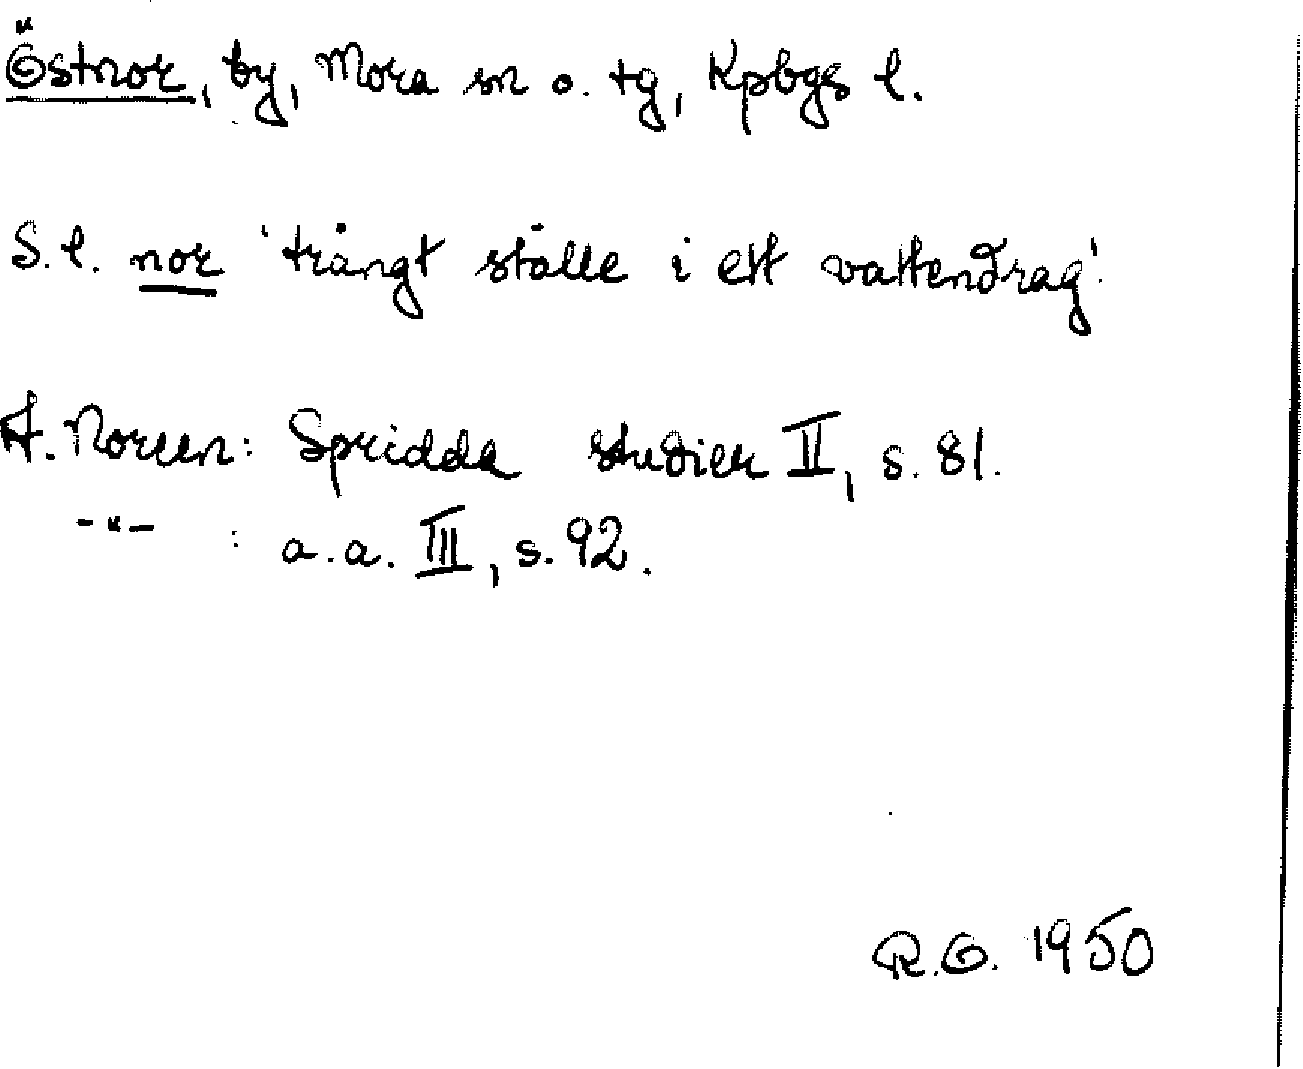 Östnor, by, Mora sn o. tg, Kpbgs l.
S.l. nor 'trångt ställe i ett vattendrag'.
A. Noreen: Spridda studier II, s. 81.
-"- : a.a. III, s. 92.
R.Ö. 1950